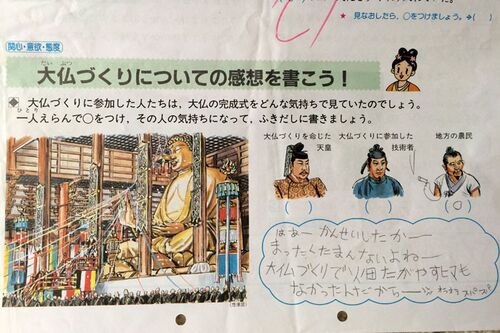 ★ 見なおしたら、○をつけましょう。→( )
関心・意欲・態度
だい ぶつ
大仏づくりについての感想を書こう！
◆ 大仏づくりに参加した人たちは、大仏の完成式をどんな気持ちで見ていたのでしょう。
ひとり
一人えらんで○をつけ、その人の気持ちになって、ふきだしに書きましょう。
大仏づくりを命じた
天皇
大仏づくりに参加した
技術者
地方の農民
( )
( )
(○)
はぁー かんせいしたかー
まったくたまんないよねー
大仏づくりで田たがやすヒマも
なかったんだから——